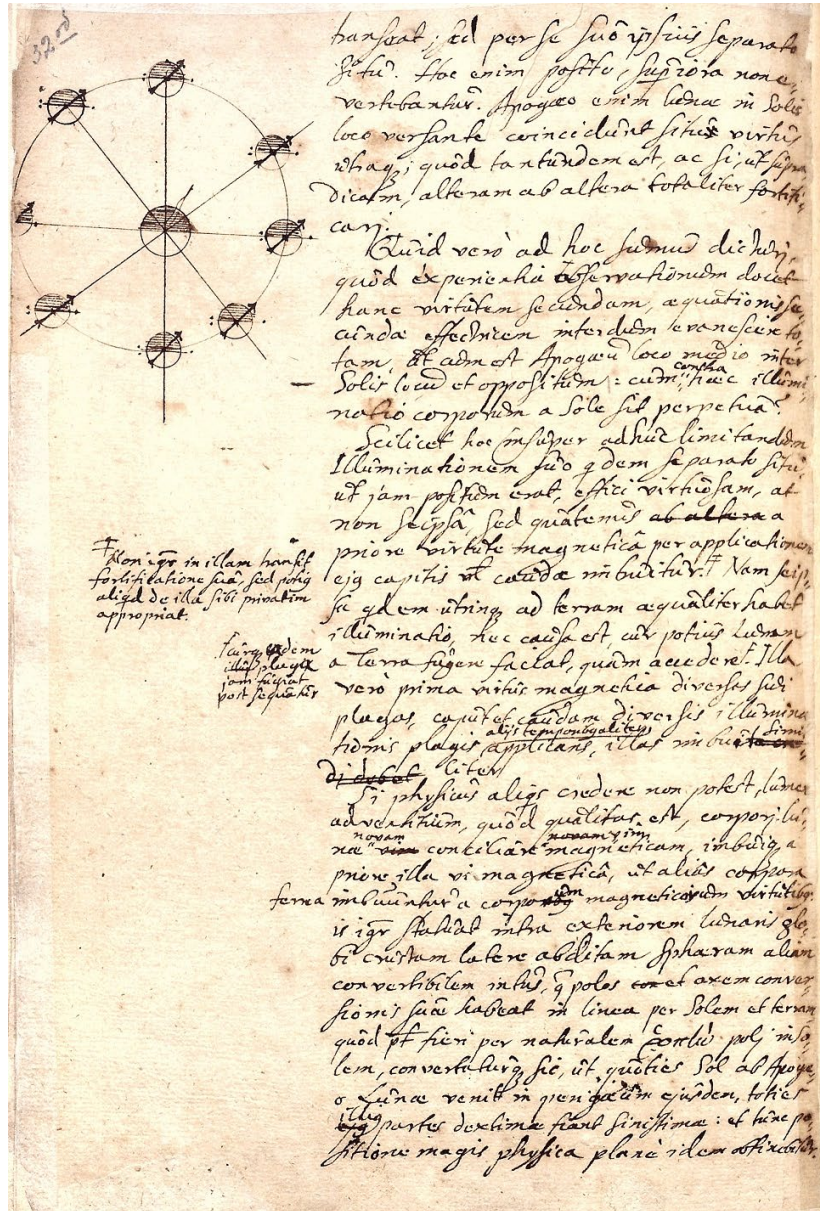 transeat; sed per se suo ipsius separato
situ. Hoc enim posito, superiora non e-
vertebantur. Apogæo enim lunæ in Solis
loco versante coincidunt situs virtus
utraq; quod tantundem est, ac si, ut supra
dicam, alteram ab altera totaliter fortifi-
cari.
Quid vero ad hoc sumus dicturi,
quod experientia observationum docet
hanc virtutem secundam, æquationis se-
cundæ effectricem interdum evanescere to-
tam, ut cum est Apogæum loco medio inter
Solis locum et oppositum: cum contra hæc illumi-
natio corporum a Sole sit perpetua?
Scilicet hoc insuper adhuc limitandum
Illuminationem suo qdem separato situ,
ut jam positum erat, effici virtuosam, at
non seipsa, sed quatenus ab altera a
priore virtute magnetica per applicationem
ejq capitis vel caudæ imbuitur. Nam seip-
sa qdem utrinq ad terram æqualiter habet
illuminatio, nec causa est, cur potius Lunam
a Terra fugere faciat, quam accedere. Illa
vero prima virtus magnetica diversas sui
plagas, caput et caudam diversis illumina
tionis plagis alijs tempor æqualiter applicans, illas imbuit simi-
di debet liter
Si physicus aliqs credere non potest, lumen
adventitium, quod qualitas est, corpori lu-
næ novam vim conciliare novam vim magneticam, imbuiq a
priore illa vi magnetica, ut alias corpora
ferrea imbuuntur a corporum magneticorum virtutibq
is igr statuat intra exteriorem lunaris glo-
bi crustam latere abditam sphæram aliam
convertibilem intus, q polos et axem conver-
sionis suæ habeat in linea per Solem et terram
quod pt fieri per naturalem polj in So-
lem, convertaturq sic, ut quoties Sol ab Apogæ-
o Lunæ venit in perigæum ejusdem, toties
illiq ejq partes dextimæ fiant sinistimæ: et tunc po-
sitione magis physica plane idem obtinebitur.
32
Non igr in illam transit
fortificatione sua, sed potiq
aliqd de illa sibi privatim
appropriat.
curq eadem
illiq plaga
jam fugiat
post sequatur